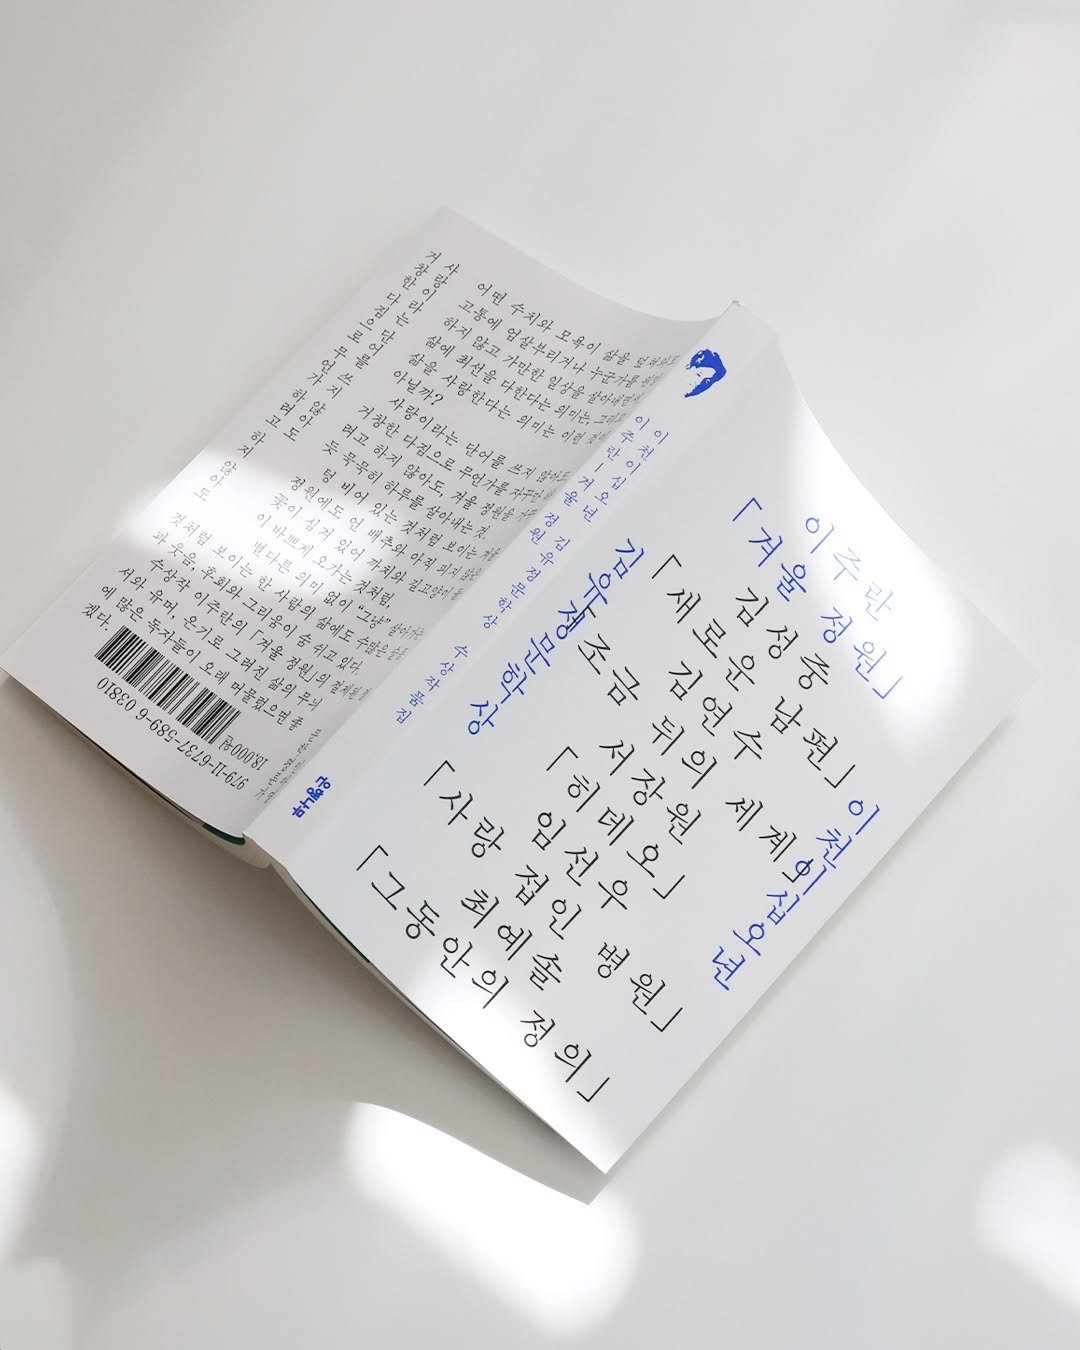 이주란
「겨울 정원」
김성중
「새로운 남편」
김연수
「조금 뒤의 세계」
서장원
「히데오」
임선우
「사랑 접인 병원」
최예솔
「그동안의 정의」
김유정문학상
이천이십오년
이천이십오년 김유정문학상 수상작품집
이주란—겨울 정원
은행나무
사랑이라는 단어를 쓰지 않아도
거창한 다짐으로 무언가 하려고 하지 않아도
어떤 수치와 모욕이 삶을 덮쳐와도
고통에 엄살부리거나 누군가를 원망
하지 않고 가만한 일상을 살아내면서
삶에 최선을 다한다는 의미는, 그리고
삶을 사랑한다는 의미는 이런 것이
아닐까?
사랑이라는 단어를 쓰지 않아도
거창한 다짐으로 무언가를 자꾸만 하
려고 하지 않아도, 겨울 정원을 가꾸
듯 묵묵히 하루를 살아내는 것.
텅 비어 있는 것처럼 보이는 겨울
정원에도 언 배추와 아직 피지 않은
꽃이 심겨 있어 까치와 길고양이들
이 바쁘게 오가는 것처럼,
별다른 의미 없이 "그냥" 살아가는
것처럼 보이는 한 사람의 삶에도 수많은 슬픔
과 웃음, 후회와 그리움이 숨 쉬고 있다.
수상작 이주란의 「겨울 정원」의 절제된
서와 유머, 온기로 그려진 삶의 무늬
에 많은 독자들이 오래 머물렀으면 좋
겠다.
979-11-6737-589-6 03810
18,000원